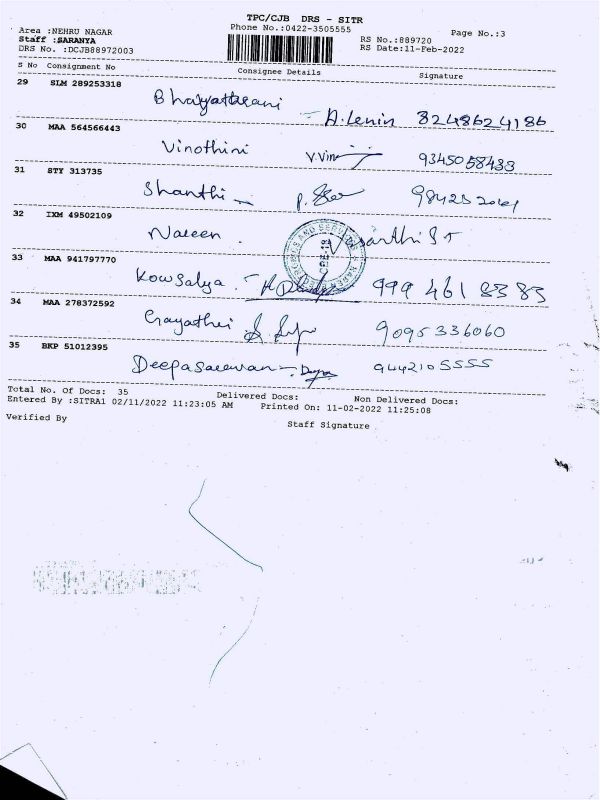 TPC/CJB DRS - SITR
Area :NEHRU NAGAR
Phone No.:0422-3505555
Page No.:3
Staff :SARANYA
RS No.:889720
DRS No. :DCJB88972003
RS Date:11-Feb-2022
S No Consignment No
Consignee Details
Signature
29 SLM 289253318
A.Lenin 8248624186
30 MAA 564566443
Vinothini V.Vin 9345058433
31 STY 313735
Shanthi
32 IXM 49502109
Naveen
33 MAA 941797770
Kowsalya 999 461 8383
34 MAA 278372592
Gayathri 9095336060
35 BKP 51012395
Deepasaravanan 9442105555
Total No. Of Docs: 35
Delivered Docs:
Non Delivered Docs:
Entered By :SITRA1 02/11/2022 11:23:05 AM
Printed On: 11-02-2022 11:25:08
Verified By
Staff Signature